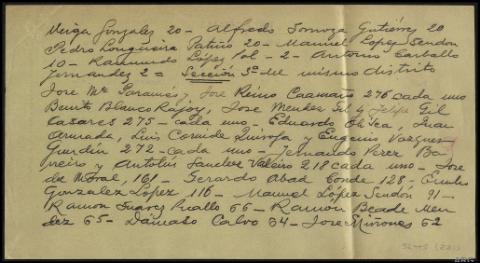 Veiga Gonzalez 20 - Alfredo Torroja Gutiérrez 20
Pedro Longueira Patiño 20 - Manuel Lopez Sendon
10 - Raimundo López Pol - 2 - Antonio Carballo
Fernandez 2 = Sección 3ª del mismo distrito
Jose Mª Paramés y Jose Reino Caamaño 276 cada uno
Benito Blanco Rajoy, Jose Mendez Gil y Felipe Gil
Casares 275 - cada uno - Eduardo Juan
Armada, Luis Cornide Quiroga y Eugenio Vazquez
Gundin 272 - cada uno - Fernando Perez Ba
rreiro y Antolin Sanchez Valeiro 218 cada uno - Jose
del Moral, 161 - Gerardo Abad Conde 128 - Emilio
Gonzalez López, 116 - Manuel López Sendón 91 -
Ramon Suarez Picallo 66 - Ramón Beade Men
dez 65 - Dámaso Calvo 64 - Jose Miñones 62